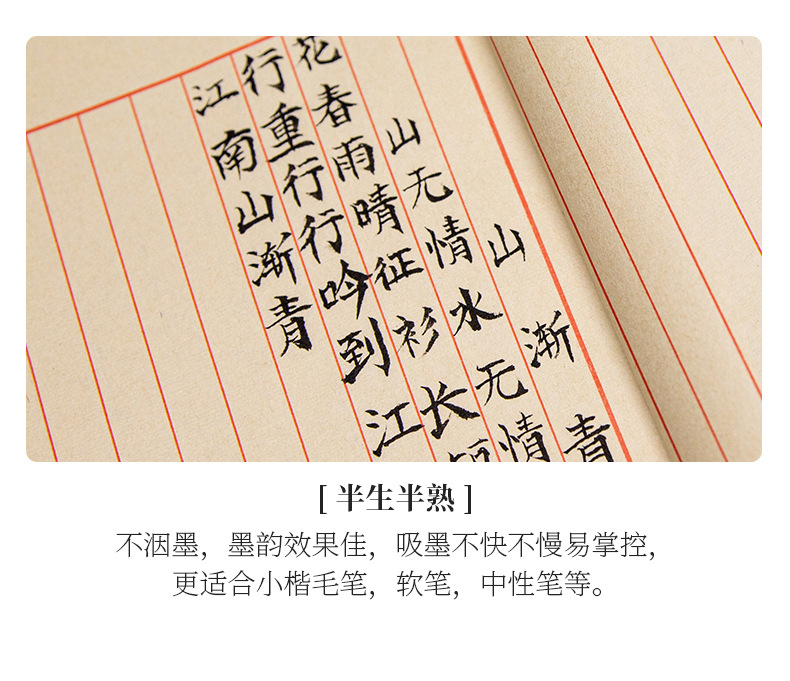 山渐青
山无情水无情
花春雨晴征衫长短
行重行行吟到江
江南山渐青
[ 半生半熟 ]
不洇墨，墨韵效果佳，吸墨不快不慢易掌控，
更适合小楷毛笔，软笔，中性笔等。